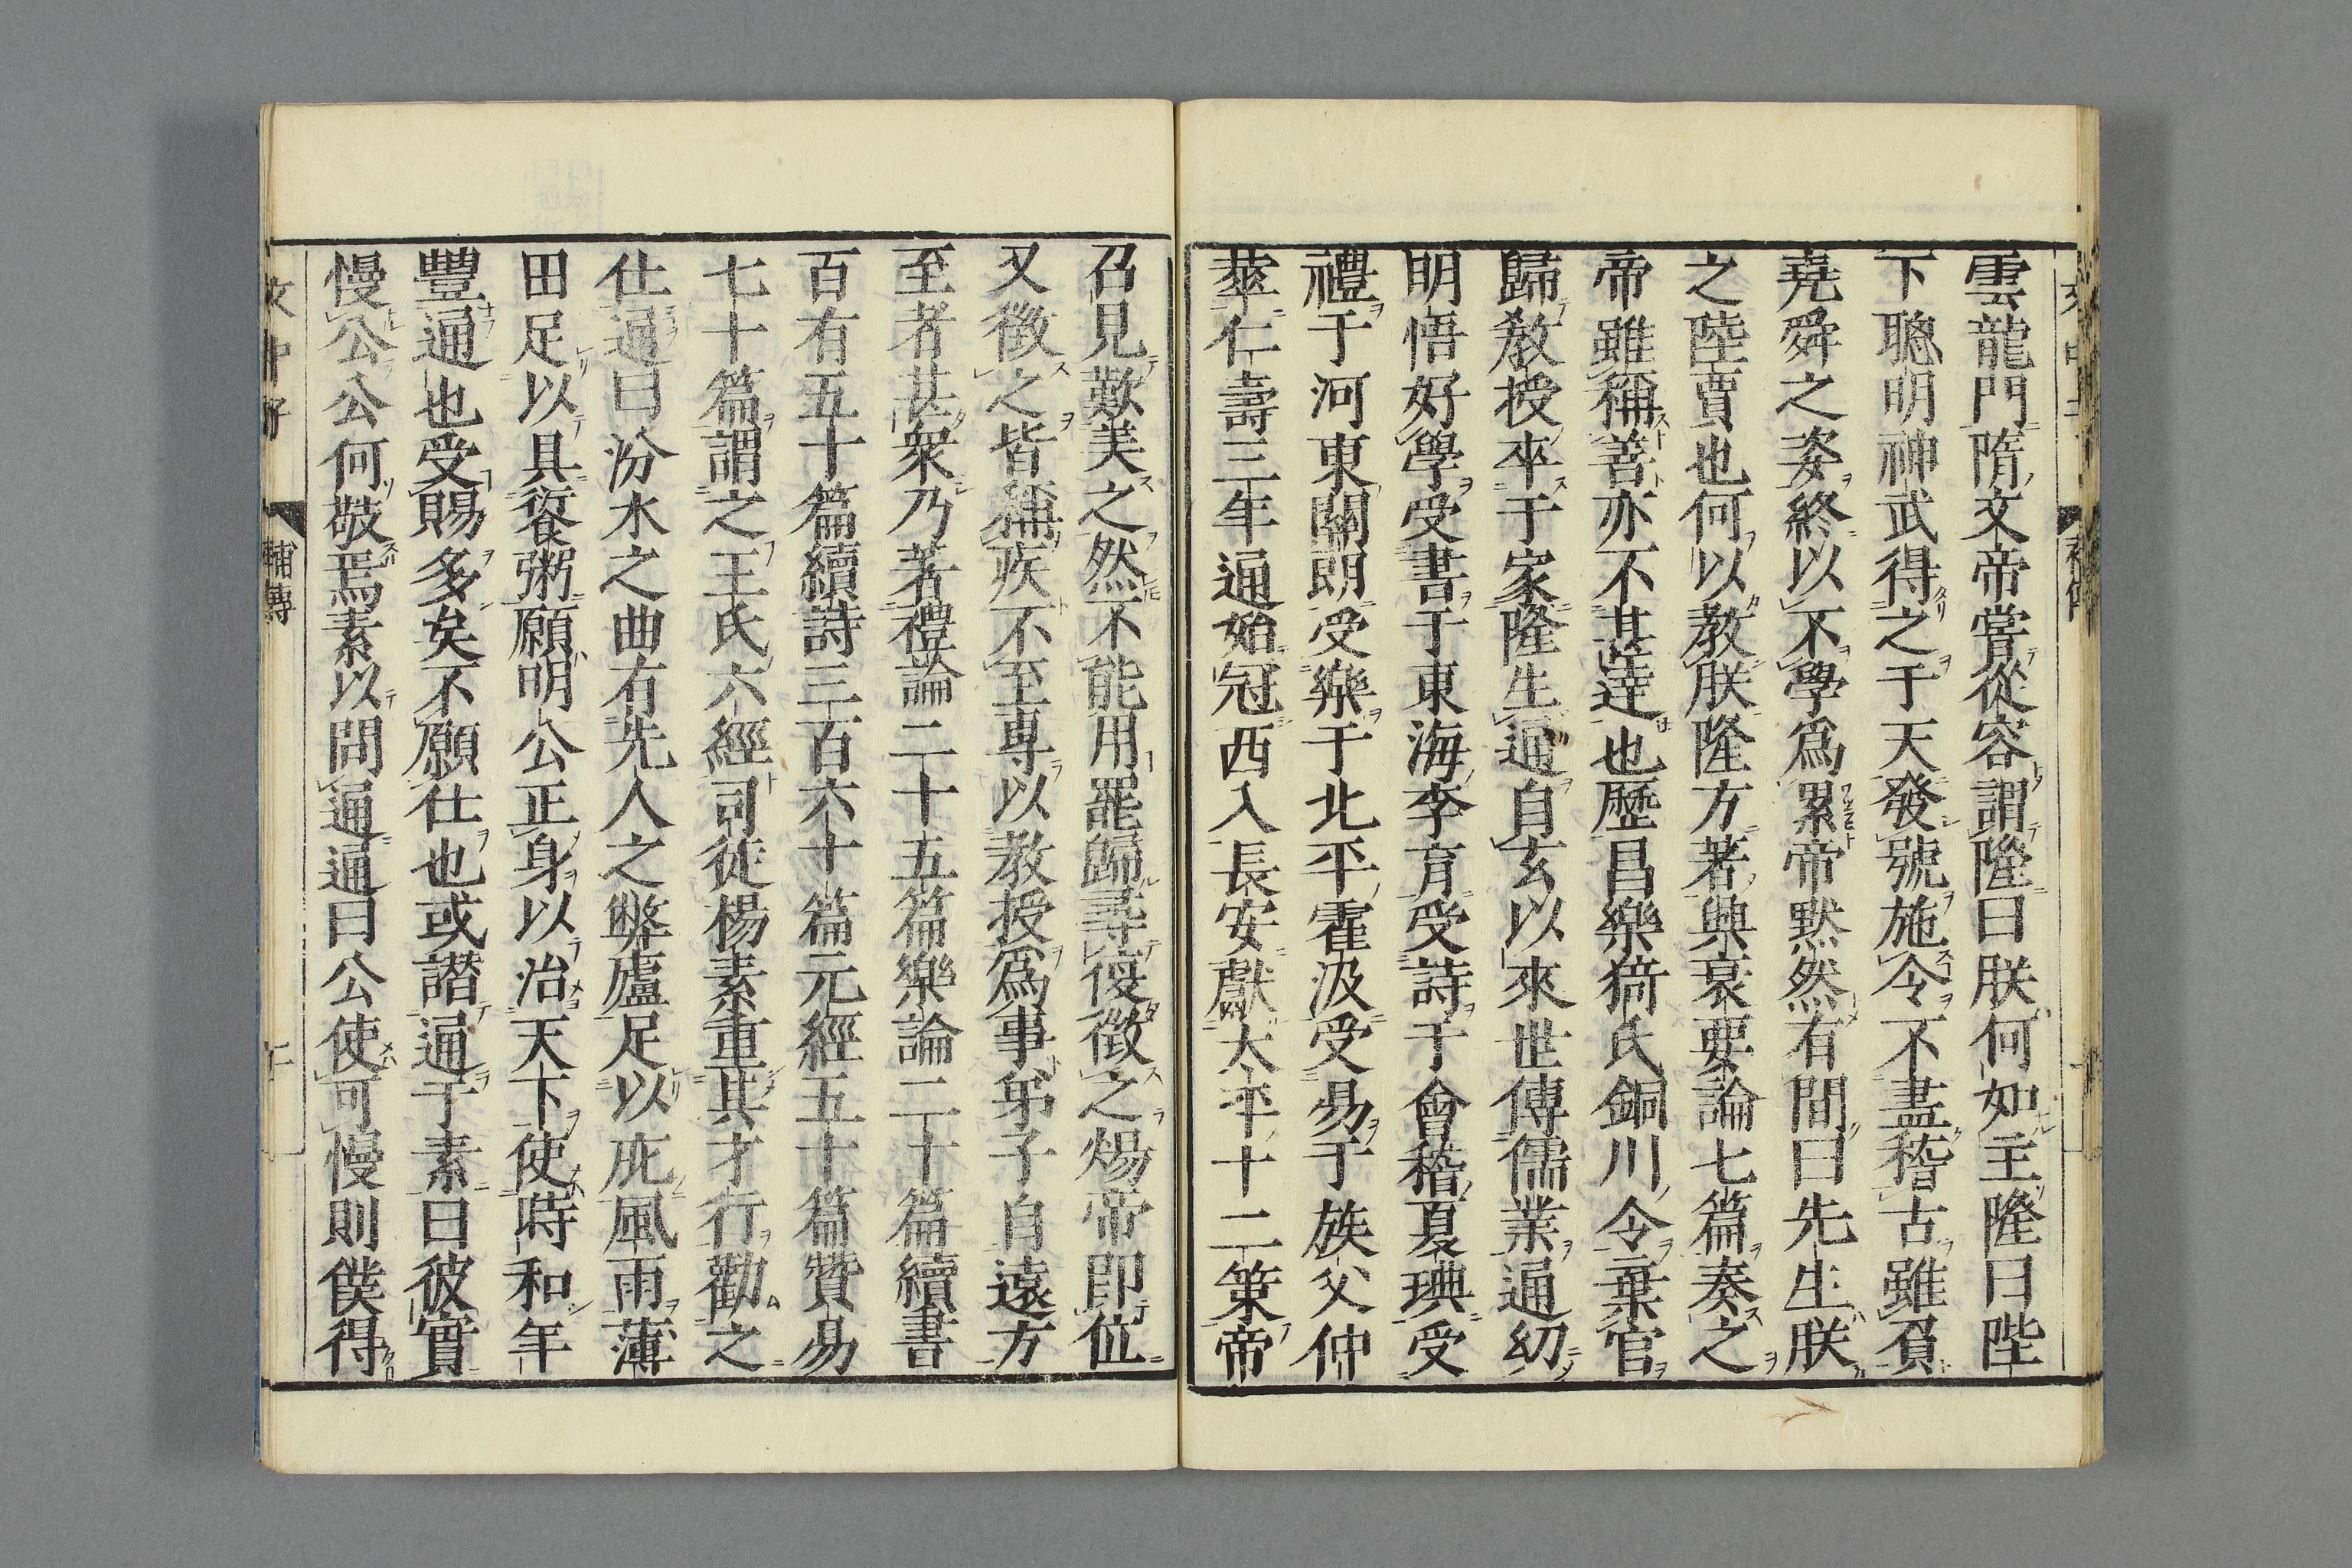 雲龍門隋文帝嘗從容謂隆曰朕何如主隆曰陛
下聰明神武得之于天發號施令不盡稽古雖負
堯舜之姿終以不學爲累帝默然有間曰先生朕
之陸賈也何以教朕隆方著興衰要論七篇奏之
帝雖稱善亦不甚達也歷昌樂猗氏銅川令棄官
歸教授卒于家隆生通自玄以來世傳儒業通幼
明悟好學受書于東海李育受詩于會稽夏琠受
禮于河東關朗受樂于北平霍汲受易于族父仲
華仁壽三年通始冠西入長安獻太平十二策帝
召見歎美之然不能用罷歸尋復徵之煬帝即位
又徵之皆稱疾不至專以教授爲事弟子自遠方
至者甚衆乃著禮論二十五篇樂論二十篇續書
百有五十篇續詩三百六十篇元經五十篇贊易
七十篇謂之王氏六經司徒楊素重其才行勸之
仕通曰汾水之曲有先人之弊廬足以庇風雨薄
田足以具餐粥願明公正身以治天下使時和年
豐通也受賜多矣不願仕也或譖通于素曰彼實
慢公公何敬焉素以問通通曰公使可慢則僕得
文中子 補傳